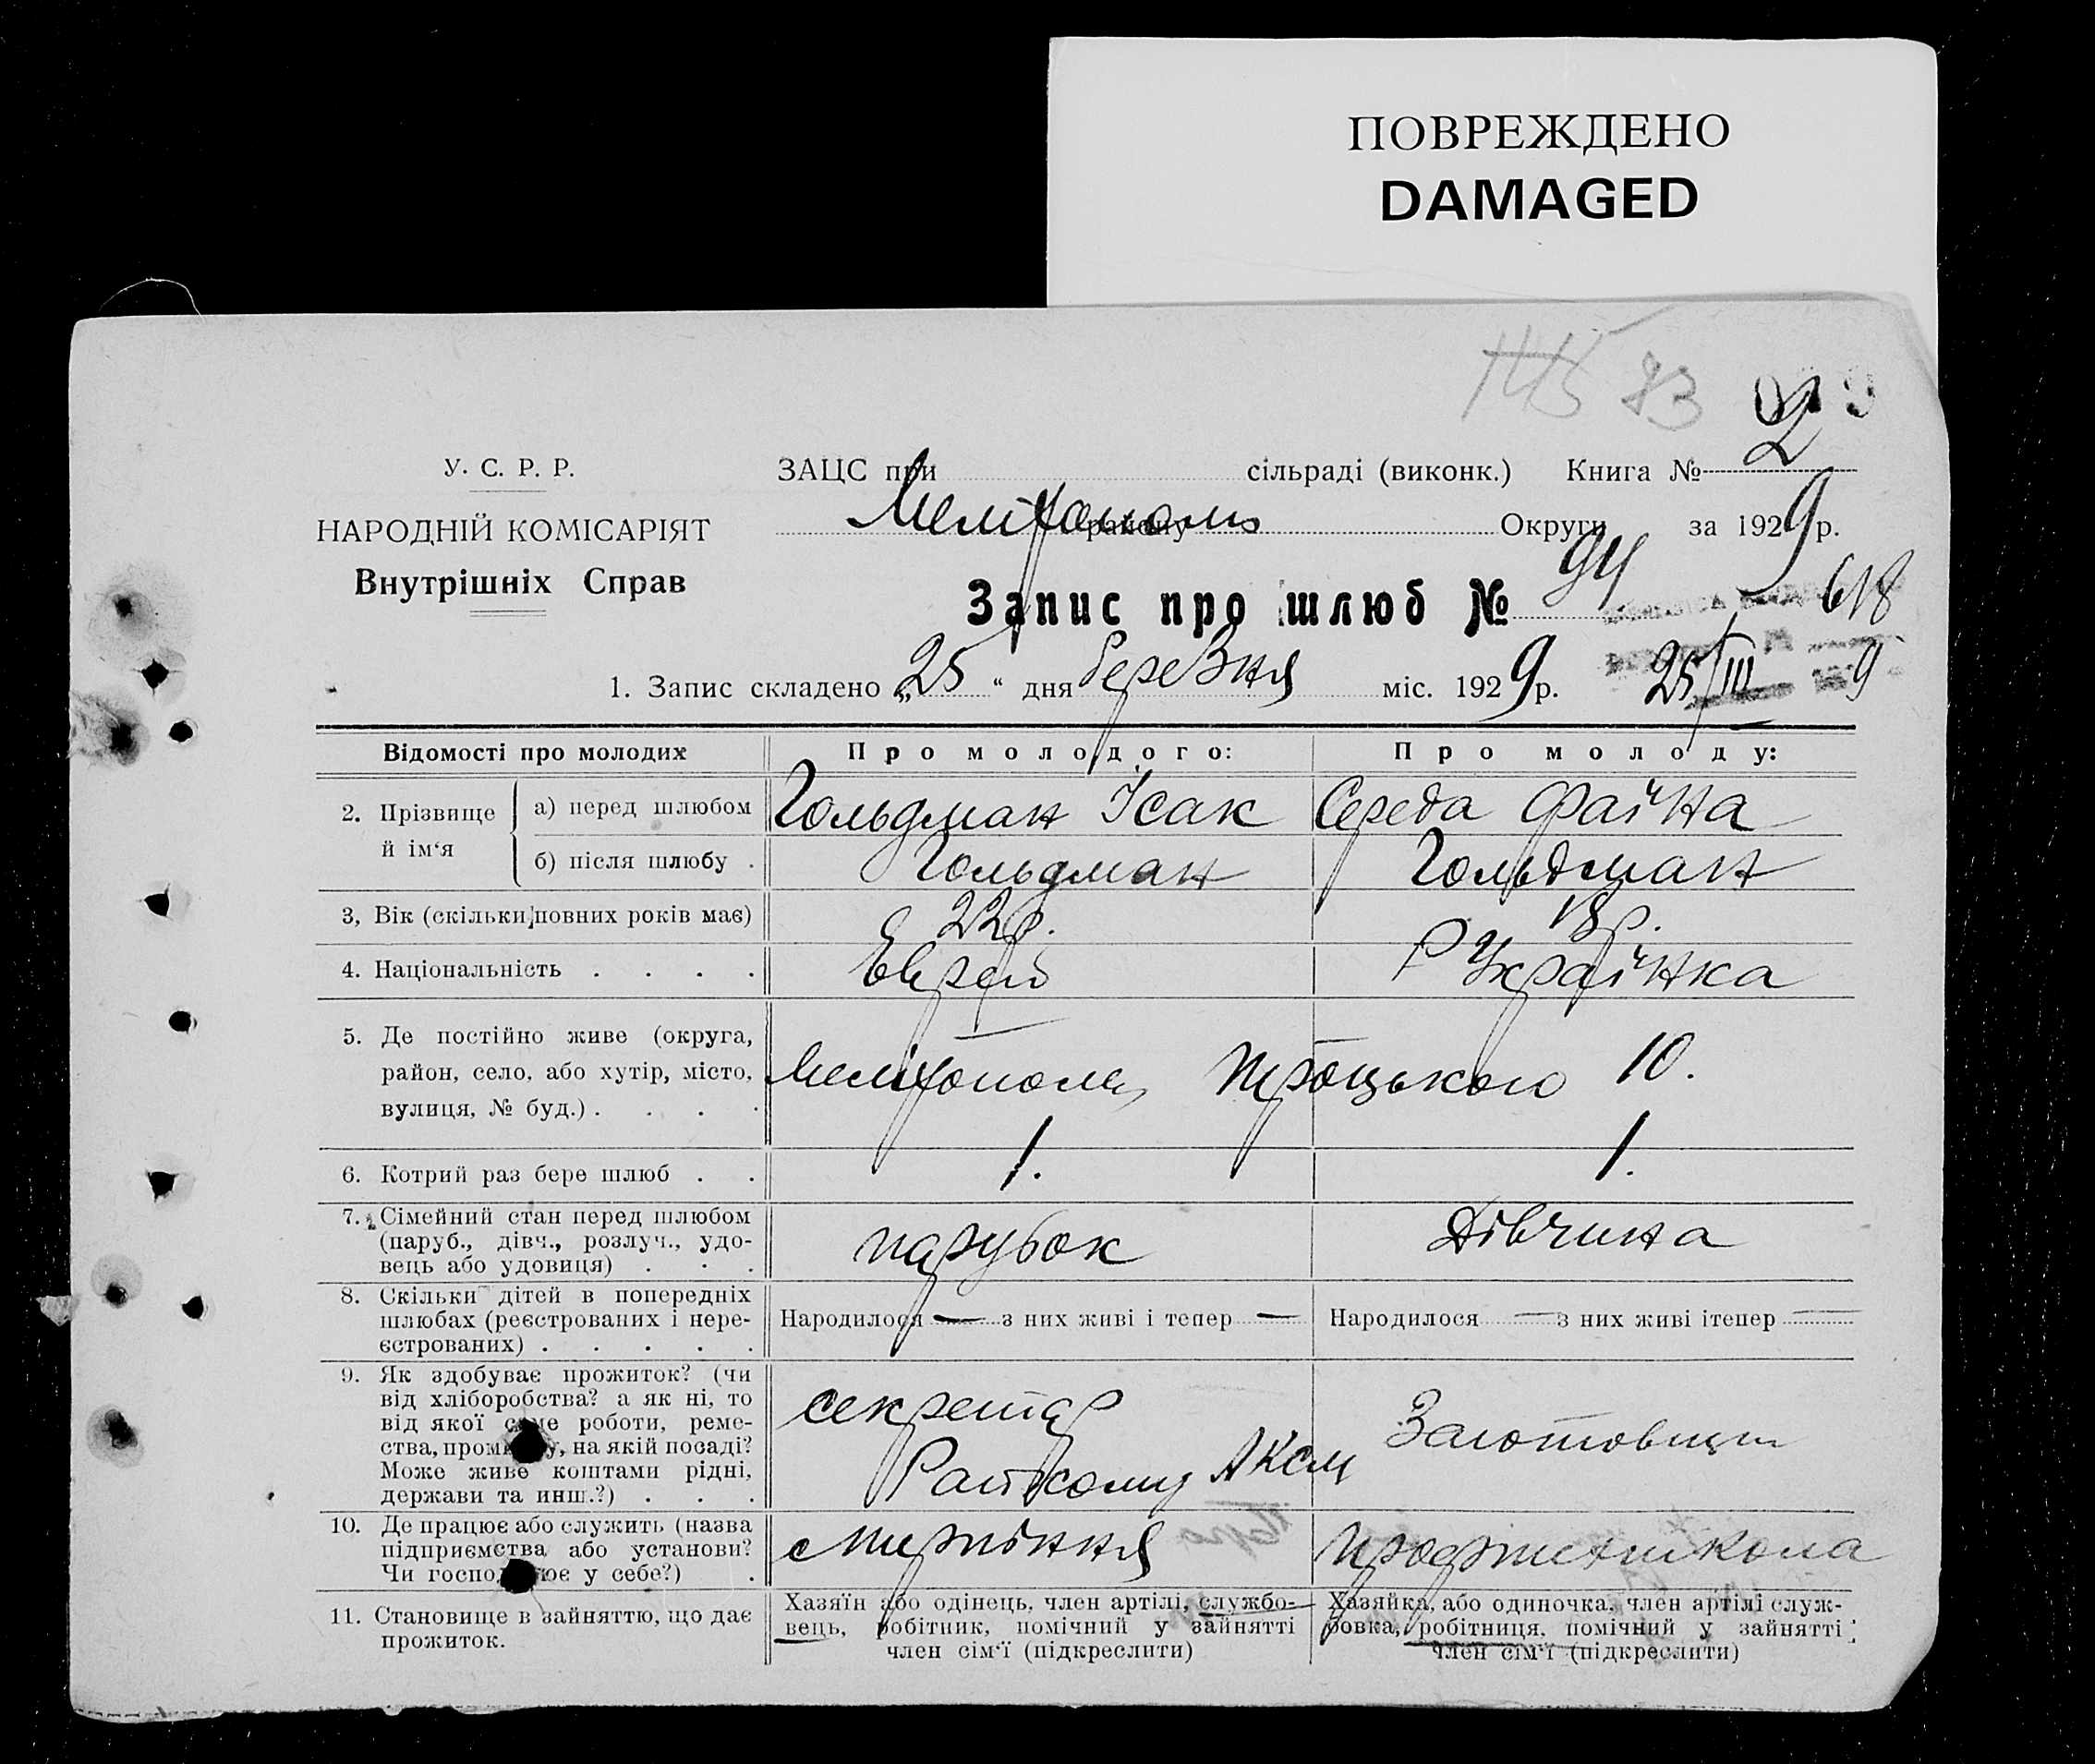 ПОВРЕЖДЕНО
DAMAGED
145 83
У. С. Р. Р.
НАРОДНІЙ КОМІСАРІЯТ
Внутрішніх Справ
ЗАЦС при сільраді (виконк.) Книга № 2
Мелітополь району Округи за 1929 р.
Запис про шлюб № 94
618
1. Запис складено „25“ дня березня міс. 1929 р. 25/III 9
Відомості про молодих
Про молодого:
Про молоду:
2. Прізвище й ім‘я
а) перед шлюбом
Гольдман Ісак
Середа Фаїна
б) після шлюбу .
Гольдман
Гольдман
3, Вік (скільки повних років має)
22 р.
18 р.
4. Національність . . . .
Еврей
Українка
5. Де постійно живе (округа,
район, село, або хутір, місто,
вулиця, № буд.) . . . .
Мелітополь, Троцького 10.
6. Котрий раз бере шлюб . .
1.
1.
7. Сімейний стан перед шлюбом
(паруб., дівч., розлуч., удо-
вець або удовиця) . . .
парубок
Дівчина
8. Скільки дітей в попередніх
шлюбах (реєстрованих і нере-
єстрованих) . . . . .
Народилося — з них живі і тепер —
Народилося — з них живі ітепер —
9. Як здобуває прожиток? (чи
від хліборобства? а як ні, то
від якої саме роботи, реме-
ства, промислу, на якій посаді?
Може живе коштами рідні,
держави та инш.?) . . .
секретар
Райкому
Заготовщиц
10. Де працює або служить (назва
підприємства або установи?
Чи господарює у себе?) .
Профтехшкола
11. Становище в зайняттю, що дає
прожиток.
Хазяїн або одінець, член артілі, службо-
вець, робітник, помічний у зайнятті
член сім‘ї (підкреслити)
Хазяйка, або одиночка, член артілі служ-
бовка, робітниця, помічний у зайнятті
член сім‘ї (підкреслити)